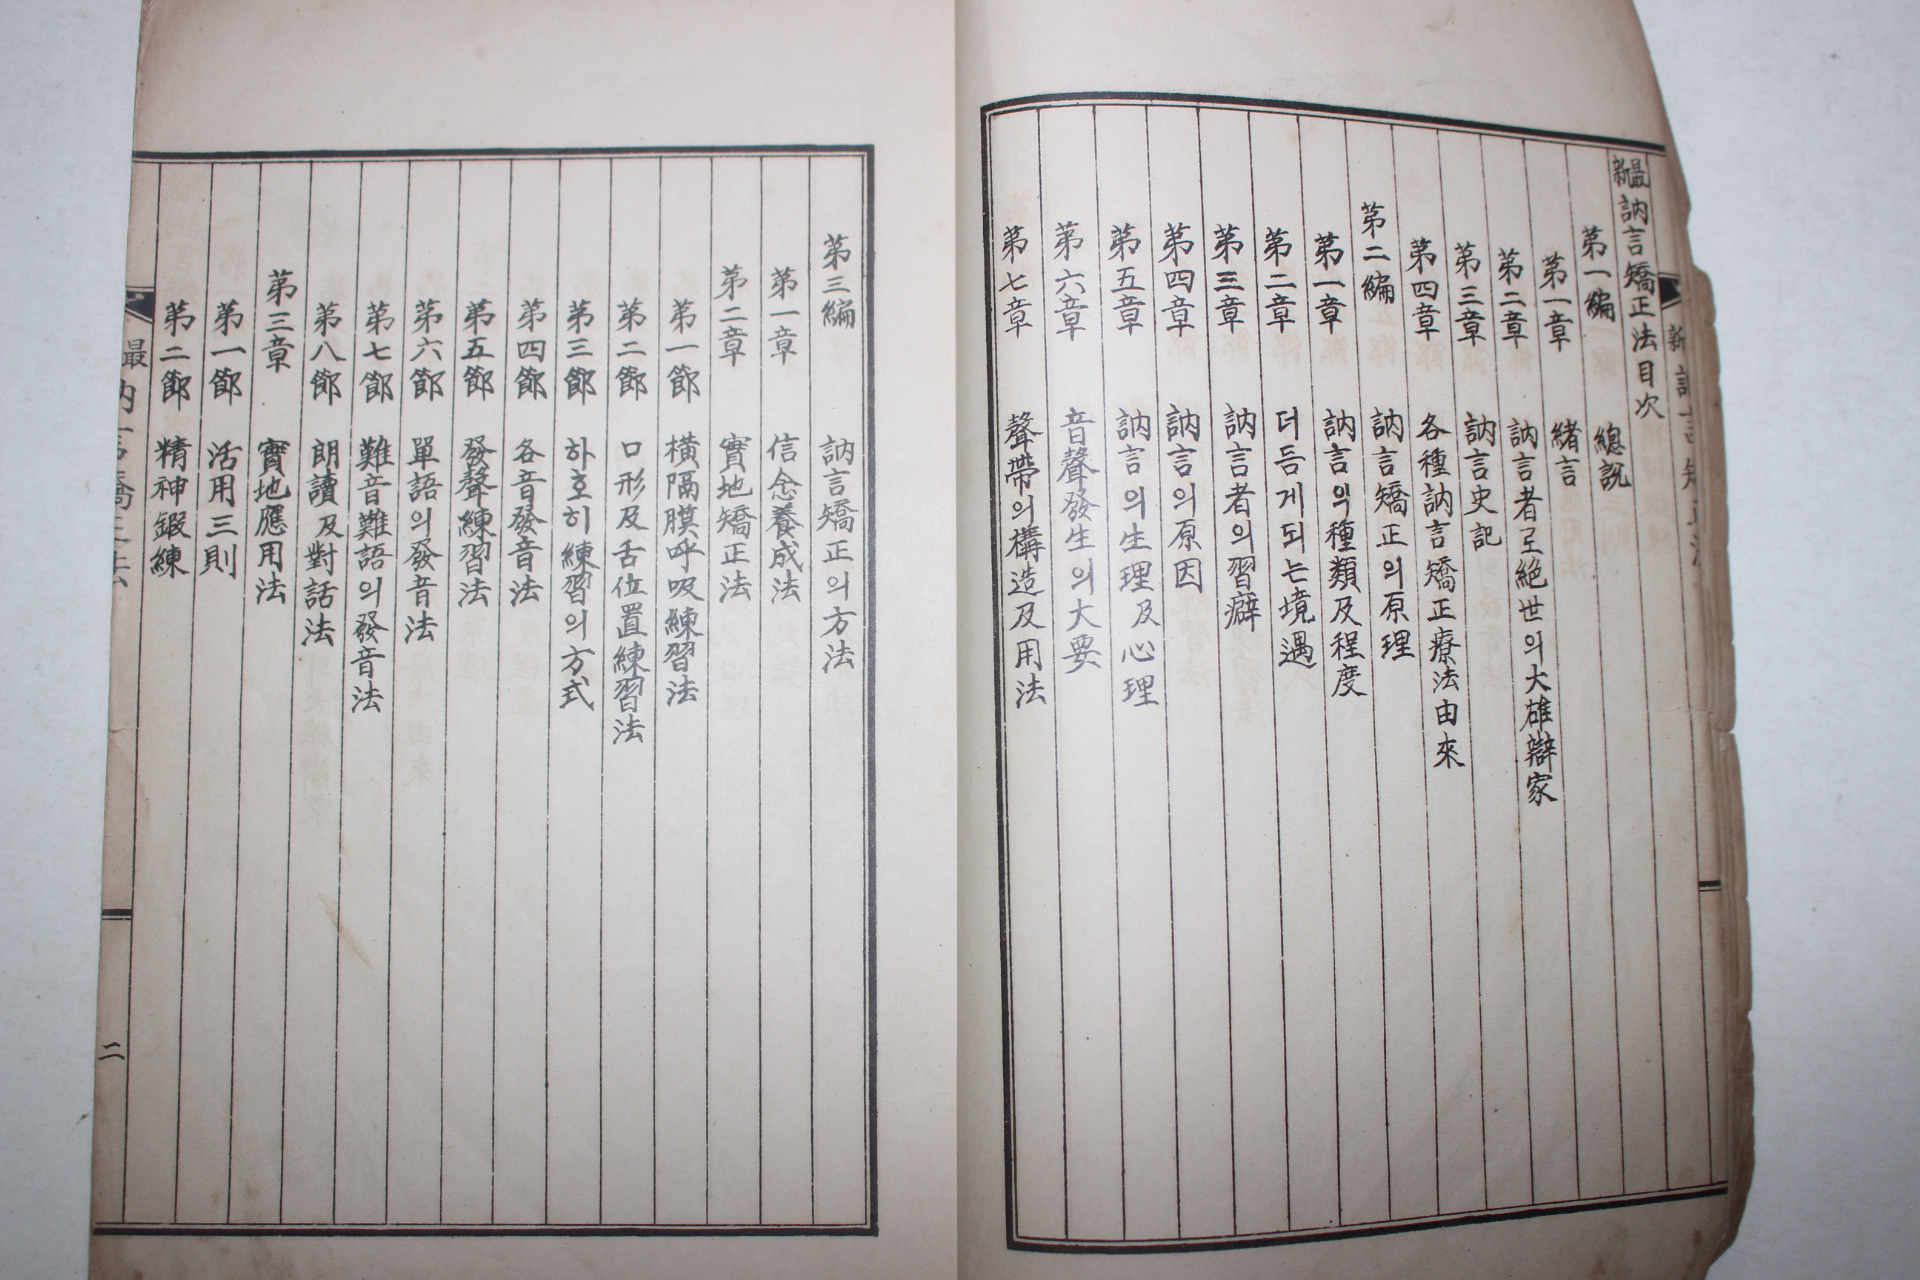 最新 訥言矯正法目次
第一編 總說
第一章 緖言
第二章 訥言者로絕世의大雄辯家
第三章 訥言史記
第四章 各種訥言矯正療法由來
第二編 訥言矯正의原理
第一章 訥言의種類及程度
第二章 더듬게되는境遇
第三章 訥言者의習癖
第四章 訥言의原因
第五章 訥言의生理及心理
第六章 音聲發生의大要
第七章 聲帶의構造及用法
第三編 訥言矯正의方法
第一章 信念養成法
第二章 實地矯正法
第一節 橫隔膜呼吸練習法
第二節 口形及舌位置練習法
第三節 하호히練習의方式
第四節 各音發音法
第五節 發聲練習法
第六節 單語의發音法
第七節 難音難語의發音法
第八節 朗讀及對話法
第三章 實地應用法
第一節 活用三則
第二節 精神鍛練
二